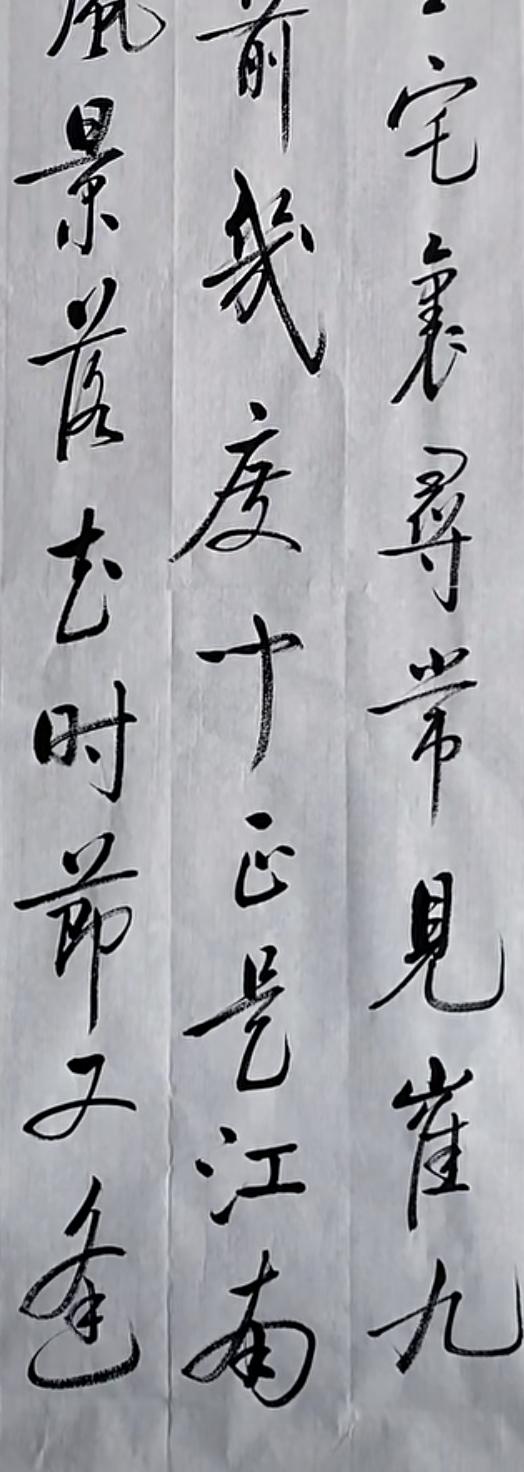 宅裏尋常見崔九
前幾度聞正是江南
風景落花时節又逢